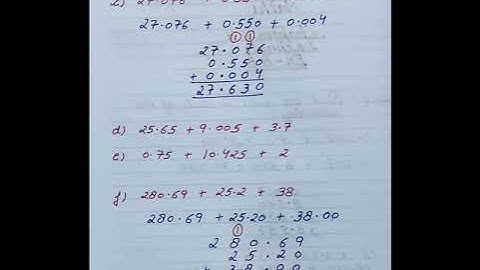 27.076 + 0.550 + 0.004
① ①
27.076
0.550
+ 0.004
27.630
d) 25.65 + 9.005 + 3.7
e) 0.75 + 10.425 + 2
f) 280.69 + 25.2 + 38
280.69 + 25.20 + 38.00
①
280.69
25.20